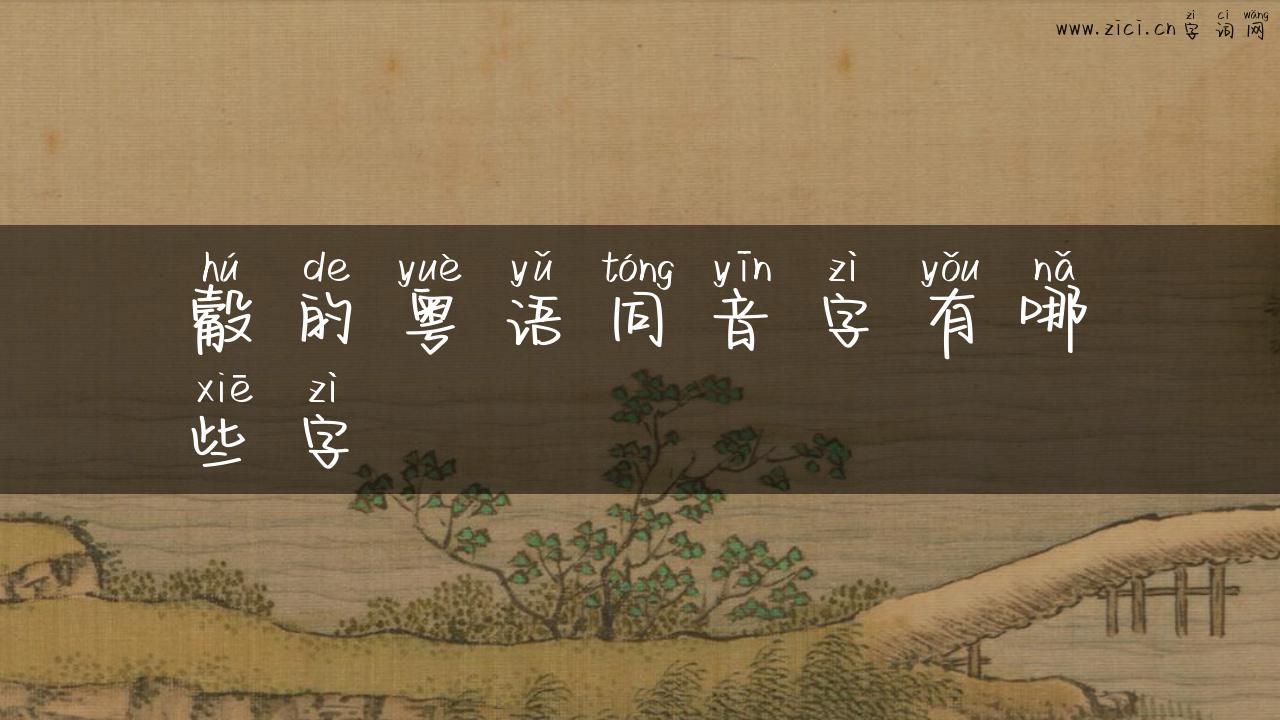 zì cí wǎng
www.zici.cn 字词网
hú de yuè yǔ tóng yīn zì yǒu nǎ
觳的粤语同音字有哪
xiē zì
些字